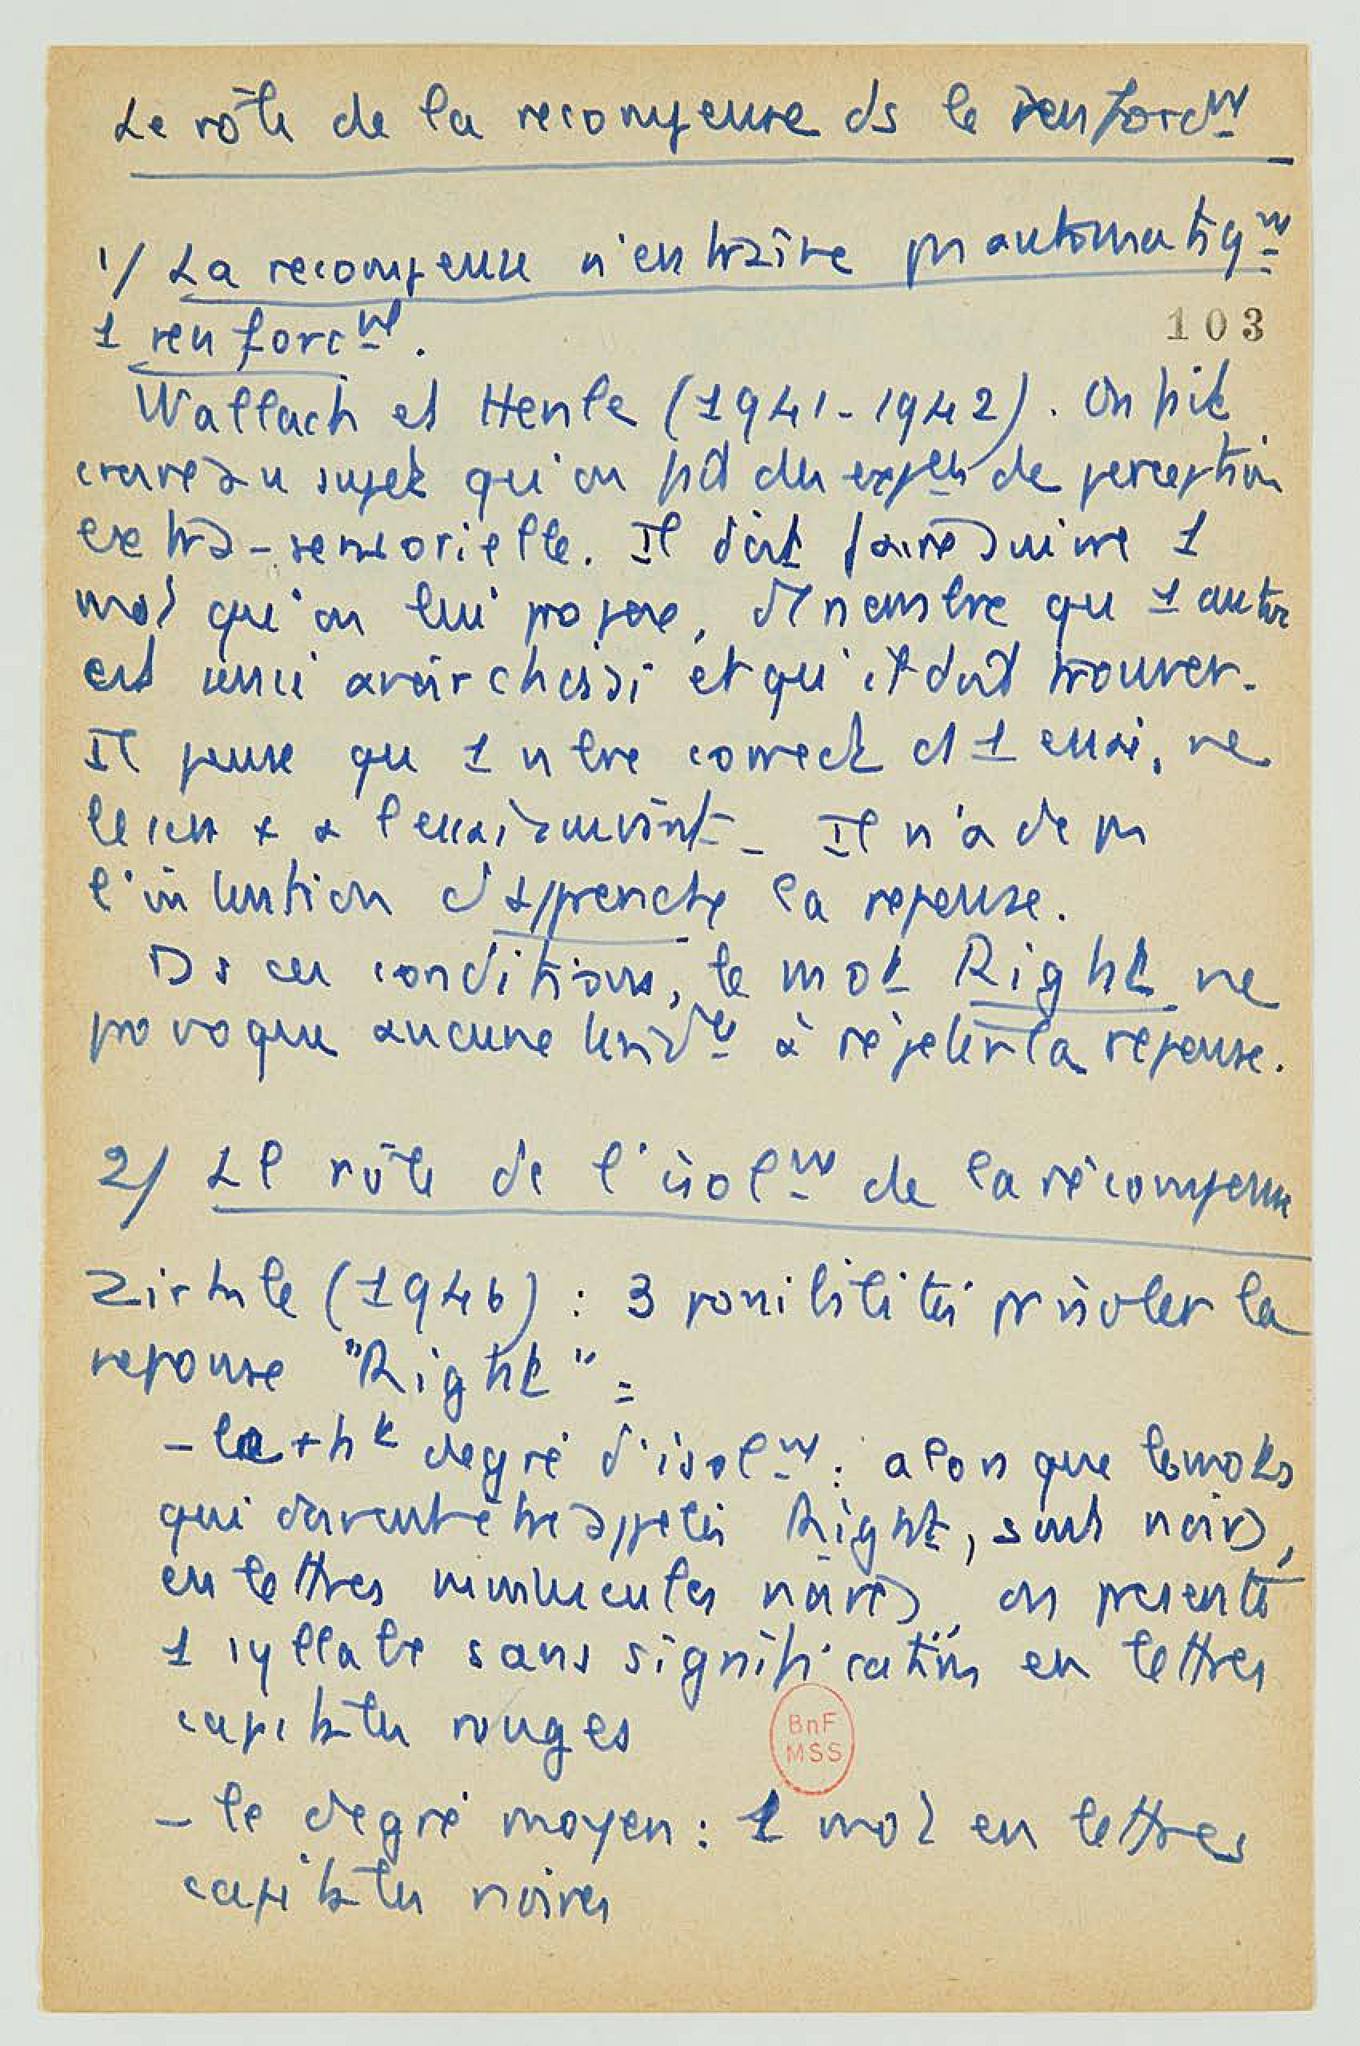 Le rôle de la recompense ds le renforcmt
1/ La recompense n'entraîne pas automatiqmt
1 renforcmt.
103
Wallach et Henle (1941-1942). On fait
croire au sujet qu'on fait des expces de perception
extra-sensorielle. Il doit faire suivre 1
mot qu'on lui propose, d'1 nombre que 1 autre
est censé avoir choisi et qu'il doit trouver.
Il pense que 1 nbre correct à 1 essai, ne
le sera + à l'essai suivant. Il n'a de pas
l'intention d'apprendre la reponse.
Ds ces conditions, le mot Right ne
provoque aucune tendce à répéter la reponse.
2/ Le rôle de l'isolmt de la récompense
Zirkle (1946) : 3 possibilités pr isoler la
reponse "Right" :
- le + ht degré d'isolmt : alors que les mots
qui doivent être appelés Right, sont noirs,
en lettres minuscules noires, on presente
1 syllabe sans signification en lettres
capitales rouges
BnF
MSS
- le degré moyen : 1 mot en lettres
capitales noires